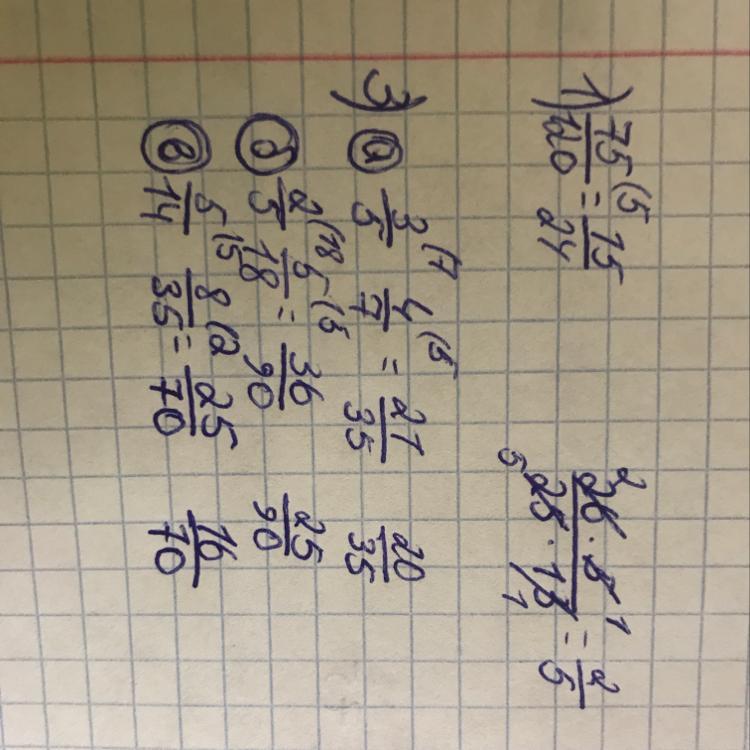 1) 75/120 (5 = 15/24   26 · 5 / 25 · 13 = 2/5
3) а 3/5 (7 4/7 (5 = 21/35 20/35
б 2/5 (18 5/18 (5 = 36/90 25/90
в 5/14 (5 8/35 (2 = 25/70 16/70